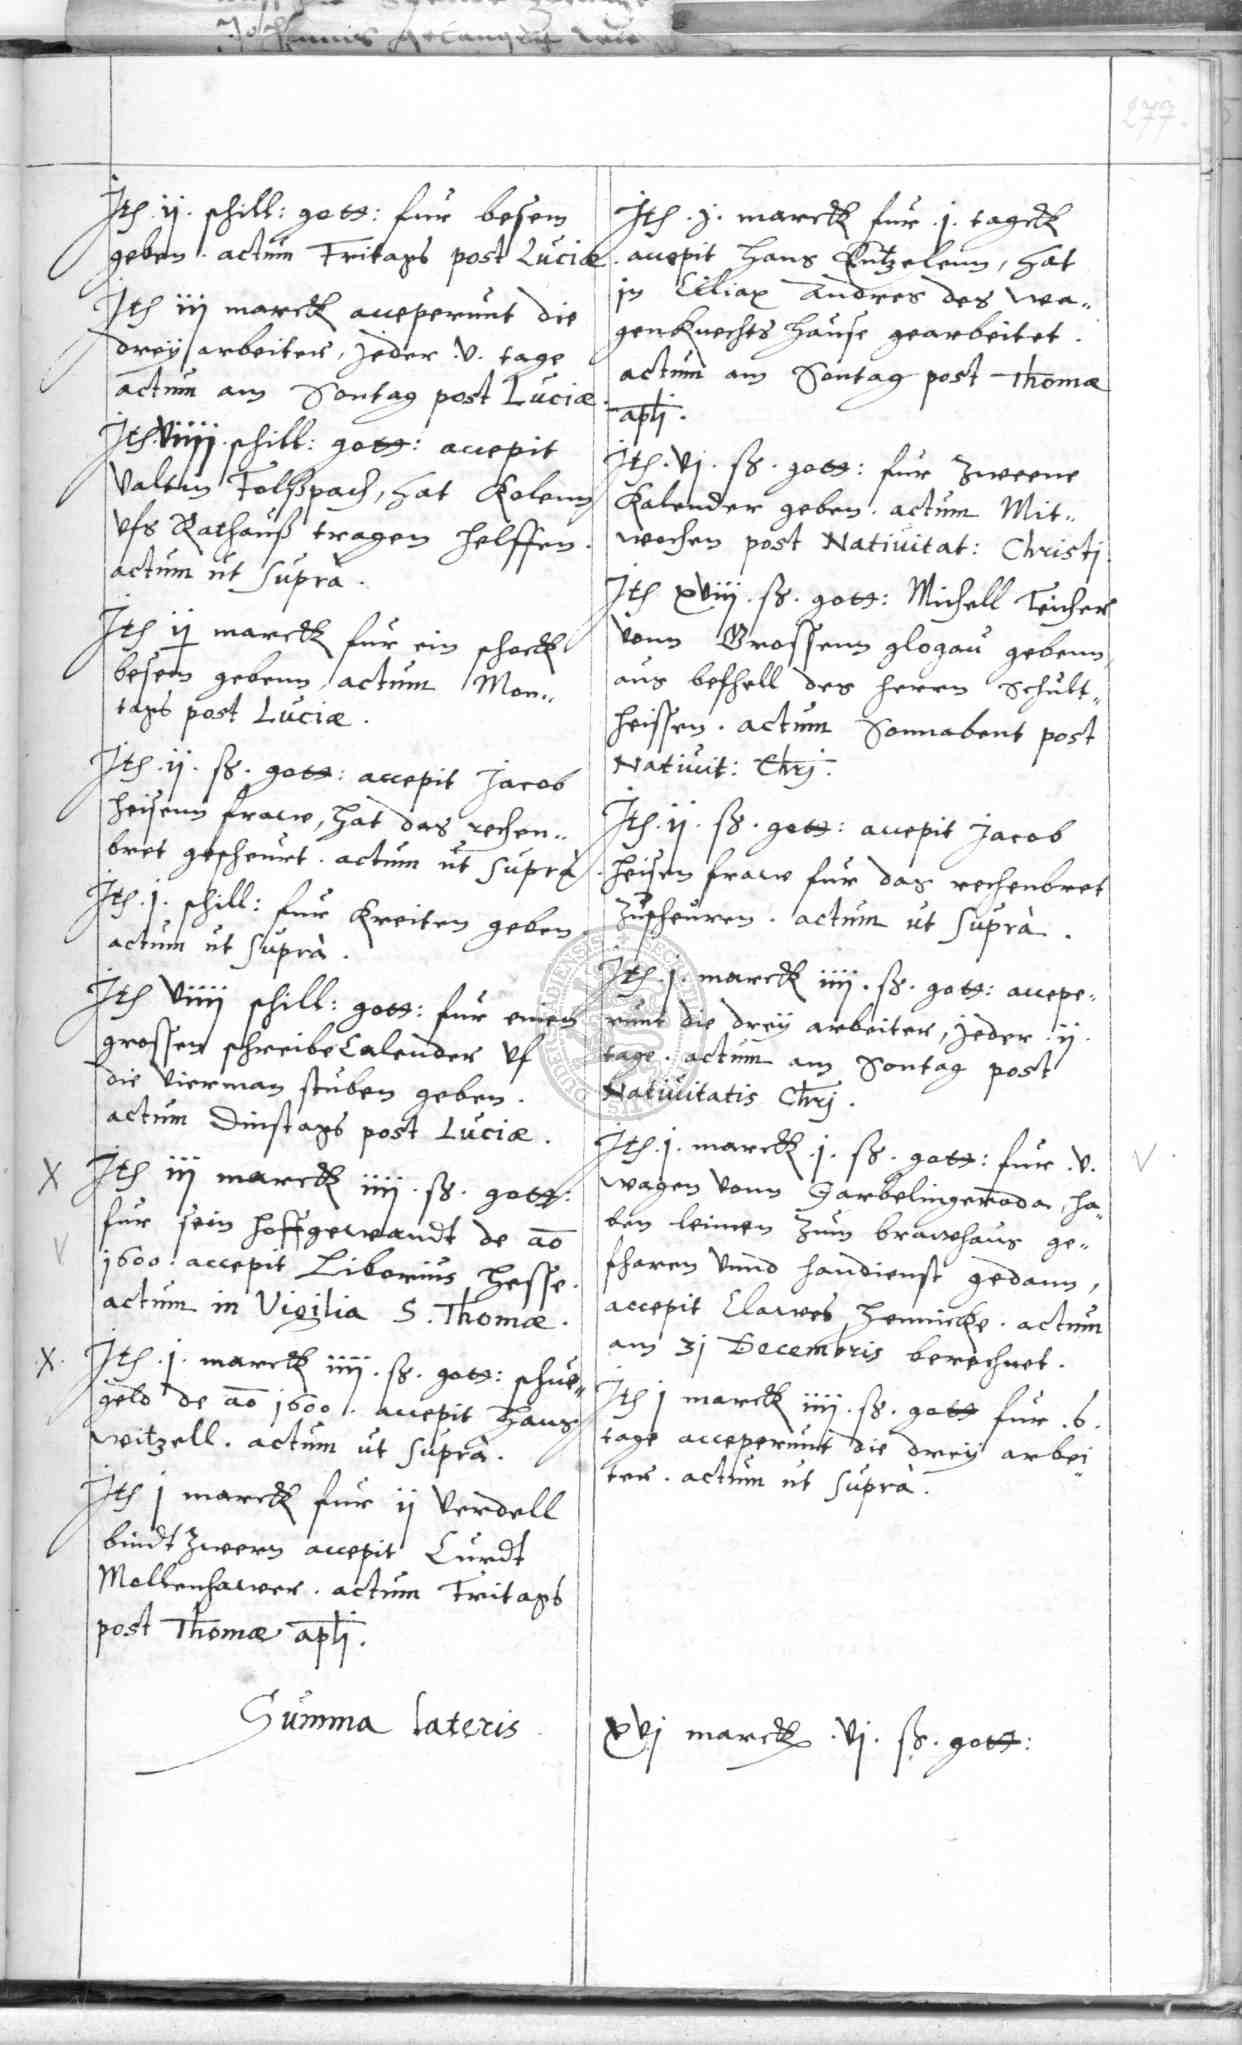 277.
Ite .ij. schill: gott: fur besem
geben. actum Fritags post Luciæ.
Ite iij marck acceperunt die
dreÿ arbeiter, jeder .v. tage
actum am Sontag post Luciæ.
Ite. viiij. schill: gott: accepit
Valtin Folßpach, hat Kolenn
vfs Rathauß tragen helffen.
actum ut suprà.
Ite ij marck fur ein schock
besem gebenn, actum Mon„
tags post Luciæ.
Ite .ij. ß. gott: accepit Jacob
heisenn fraw, hat das rechen„
bret gescheurt. actum ut suprà
Ite .j. schill: fur Kreiten geben.
actum ut suprà.
Ite viiij schill: gott: fur einen
grossen schreibeCalender vf
die vierman stuben geben.
actum Dinstags post Luciæ.
X Ite iij marck iiij. ß. gott:
fur sein hoffgewandt de ao
V 1600. accepit Liborius Hesse.
actum in Vigilia S. Thomæ.
.X. Ite .j. marck iiij. ß. gott: schue„
geld de ao 1600. accepit Hans
witzell. actum ut suprà.
Ite j marck fur ij verdell
bindtzwern accepit Curdt
Mollenhawer. actum Fritags
post Thomæ apli.
Summa lateris
Ite .j. marck fur .j. tagck
accepit Hans, hat
in Ciliax Andres des wa„
genKnechts hause gearbeitet.
actum am Sontag post Thomæ
apli.
Ite. vj. ß. gott: fur zweene
Kalender geben. actum Mit„
wochen post Nativitat: Christj.
Ite xviij. ß. gott: Michell Teicher
vonn Grossenn glogau gebenn,
aus befhell des herrn Schult„
heissen. actum Sonnabent post
Nativit: Chrj.
Ite .ij. ß. gott: accepit Jacob
heisen fraw fur das rechenbret
zuscheuren. actum ut suprà.
Ite .j. marck iiij. ß. gott: accepe„
runt die dreÿ arbeiter, jeder .ij.
tage. actum am Sontag post
Nativitatis Chrj.
Ite .j. marck .j. ß. gott: fur .v. V
wagen vonn Garbelingeroda, ha„
ben leimen zum brawhaus ge„
fharen vnnd handienst gedann,
accepit Clawes Hennicke. actum
am 31 Decembris berechnet.
Ite j marck iiij. ß. gott fur .6.
tage acceperunt die dreÿ arbei„
ter. actum ut suprà.
xvj marck .vj. ß. gott: